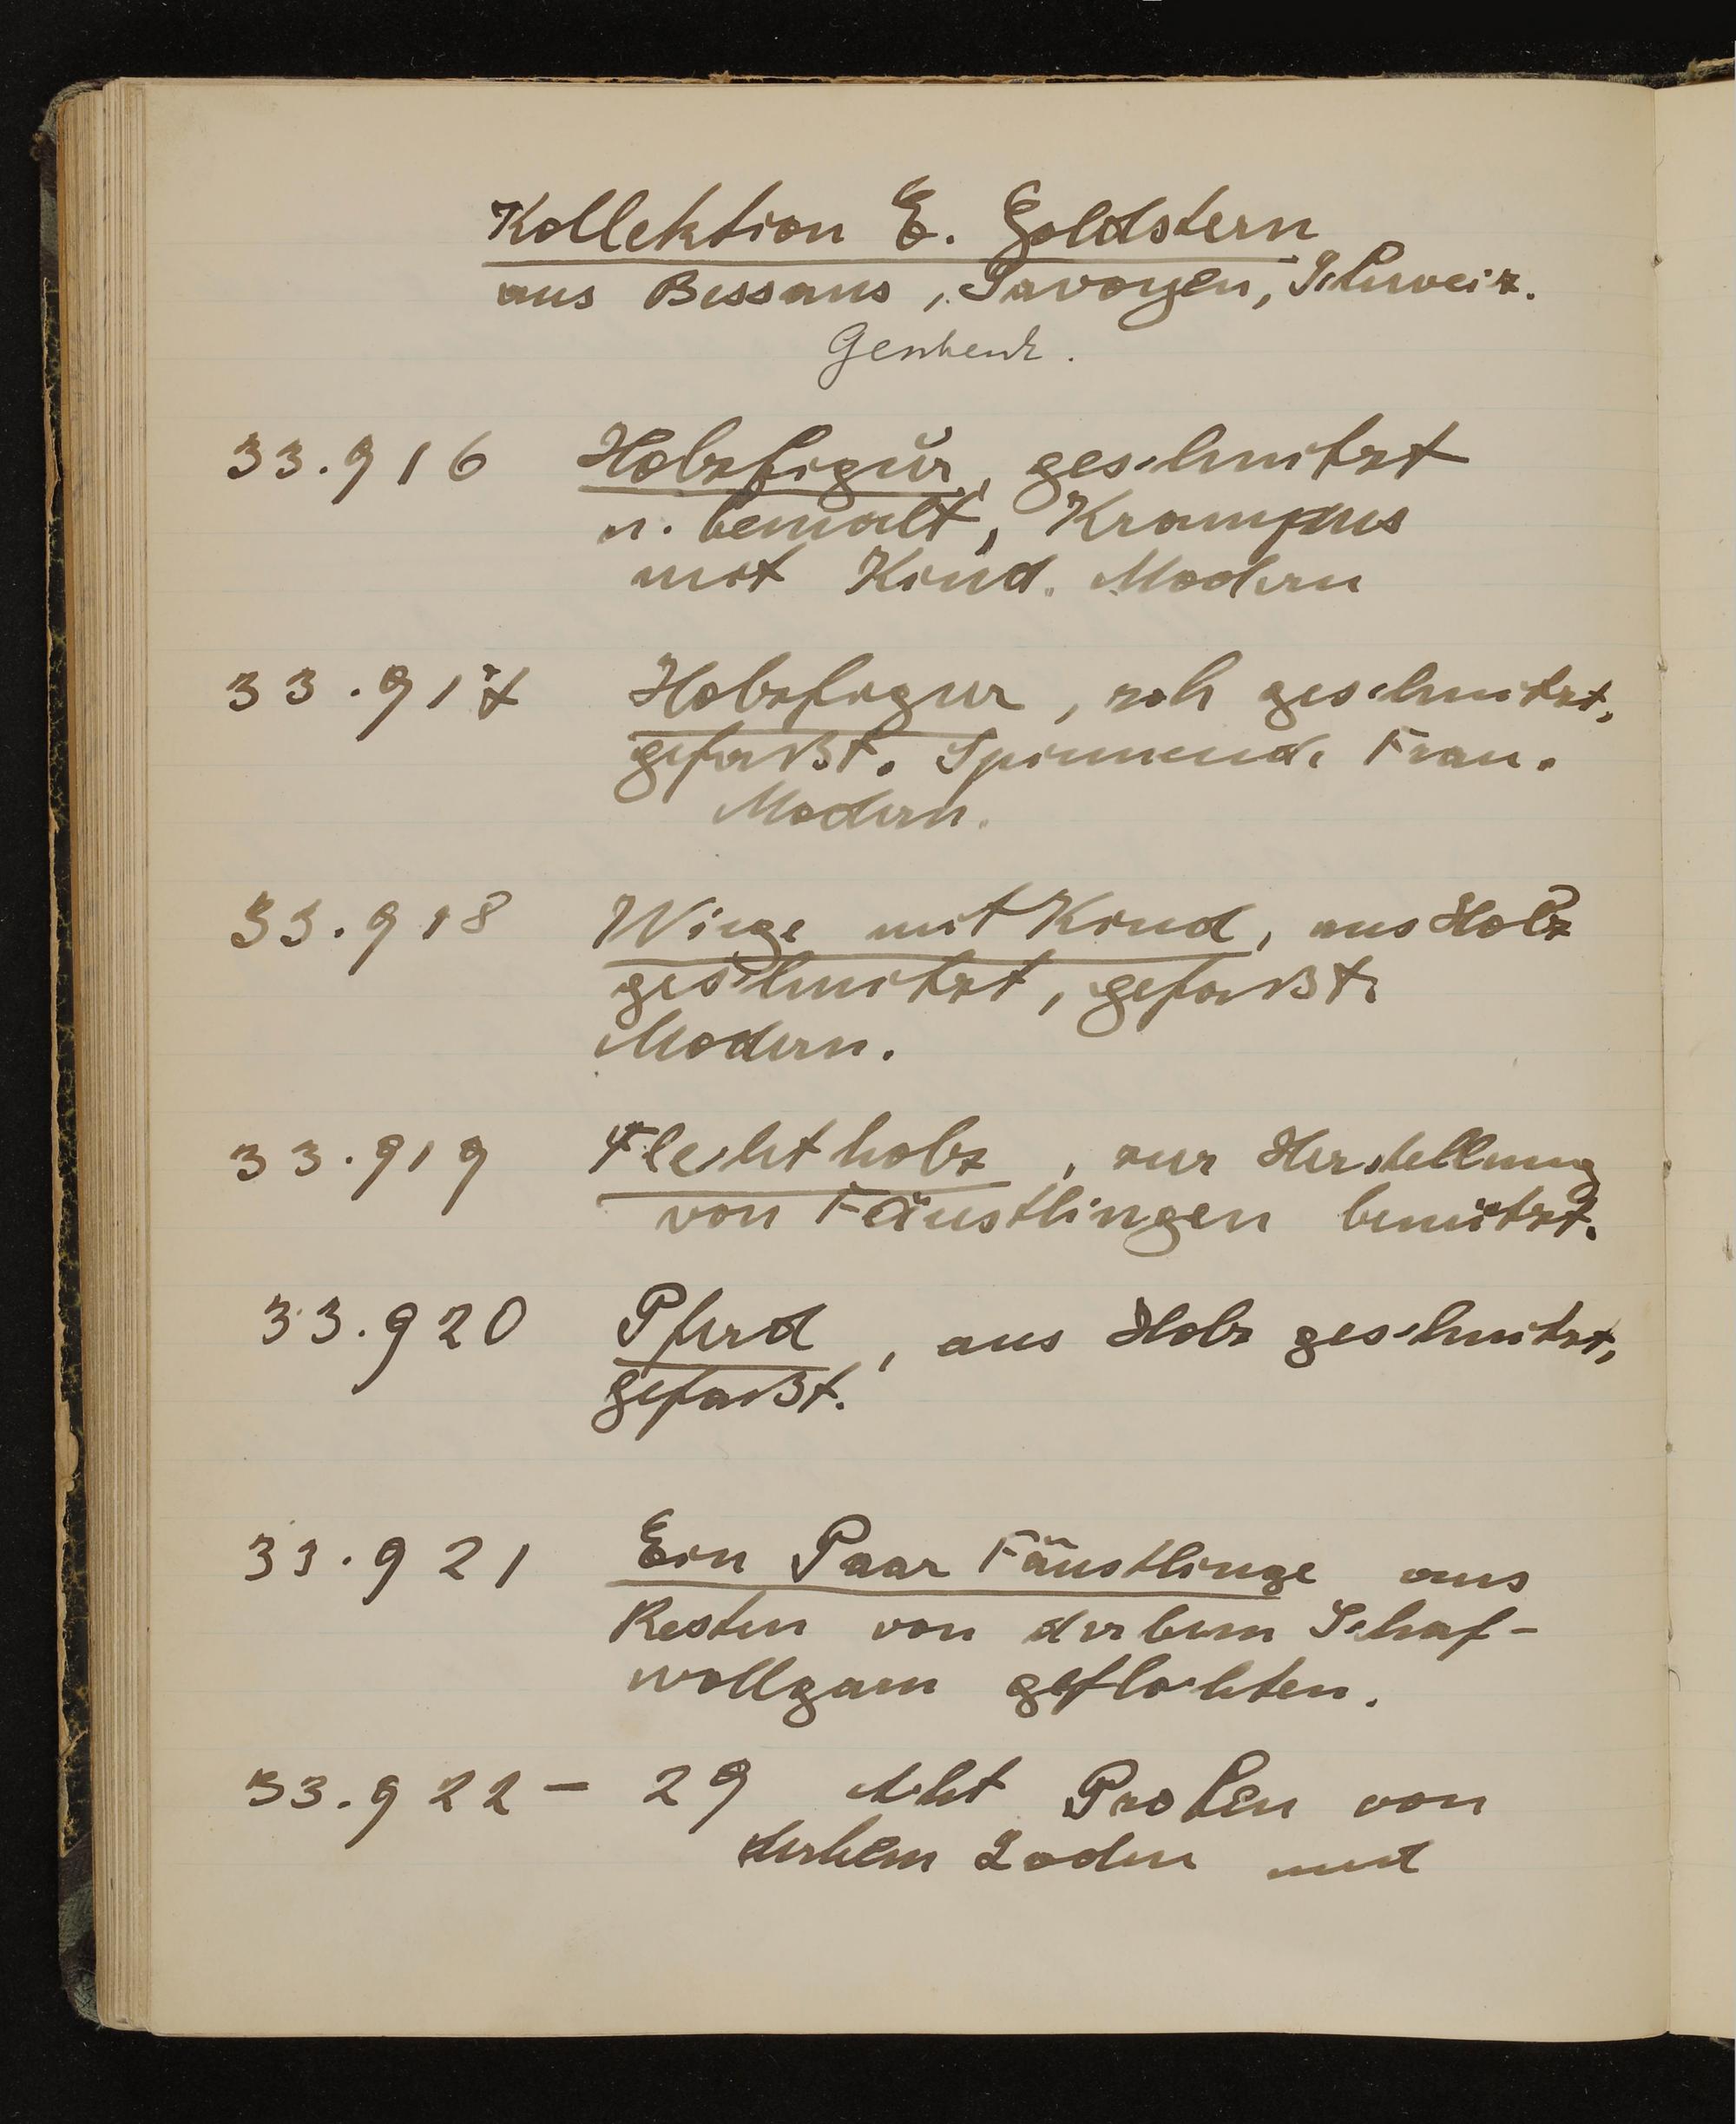 Kollektion E. Goldstern
aus Bessans, Savoyen, Schweiz.
Geschenk.
33.916 Holzfigur, geschnitzt
u. bemalt, Krampus
mit Kind. Modern
33.917 Holzfigur, roh geschnitzt,
gefaßt. Spinnende Frau.
Modern.
33.918 Wiege mit Kind, aus Holz
geschnitzt, gefaßt.
Modern.
33.919 Flechtholz, zur Herstellung
von Fäustlingen benützt.
33.920 Pferd, aus Holz geschnitzt,
gefaßt.
33.921 Ein Paar Fäustlinge aus
Resten von derbem Schaf-
wollgarn geflochten.
33.922 - 29 Acht Proben von
derbem Loden und